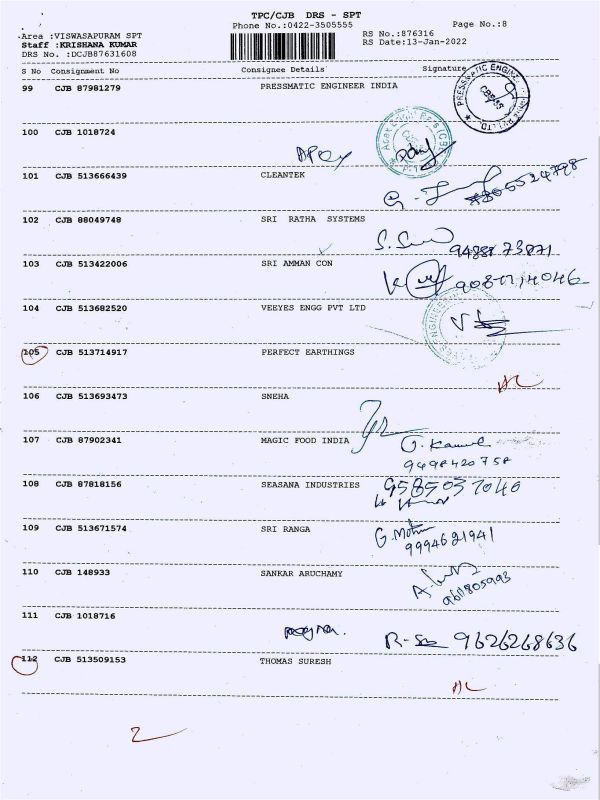 TPC/CJB DRS - SPT
Phone No.:0422-3505555 Page No.:8
Area :VISWASAPURAM SPT RS No.:876316
Staff :KRISHANA KUMAR RS Date:13-Jan-2022
DRS No. :DCJB87631608
S No Consignment No Consignee Details Signature
99 CJB 87981279 PRESSMATIC ENGINEER INDIA
100 CJB 1018724
101 CJB 513666439 CLEANTEK
102 CJB 88049748 SRI RATHA SYSTEMS
103 CJB 513422006 SRI AMMAN CON
104 CJB 513682520 VEEYES ENGG PVT LTD
105 CJB 513714917 PERFECT EARTHINGS
106 CJB 513693473 SNEHA
107 CJB 87902341 MAGIC FOOD INDIA
9498420758
108 CJB 87818156 SEASANA INDUSTRIES 9585037040
109 CJB 513671574 SRI RANGA
9994621941
110 CJB 148933 SANKAR ARUCHAMY
111 CJB 1018716
9626268636
112 CJB 513509153 THOMAS SURESH
2